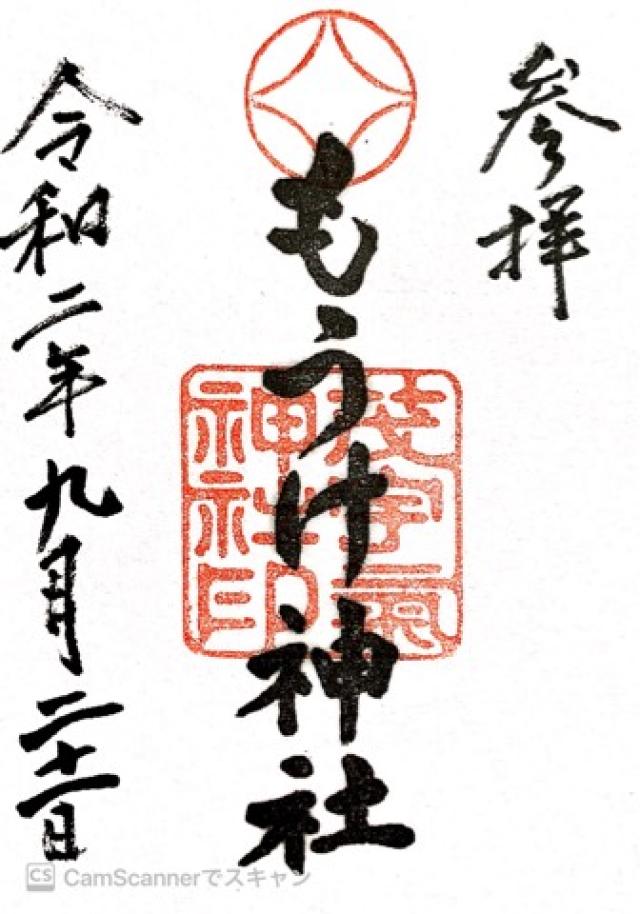 参拝
もうけ神社
茂宇氣
神社印
令和二年九月二十一日
CS CamScannerでスキャン